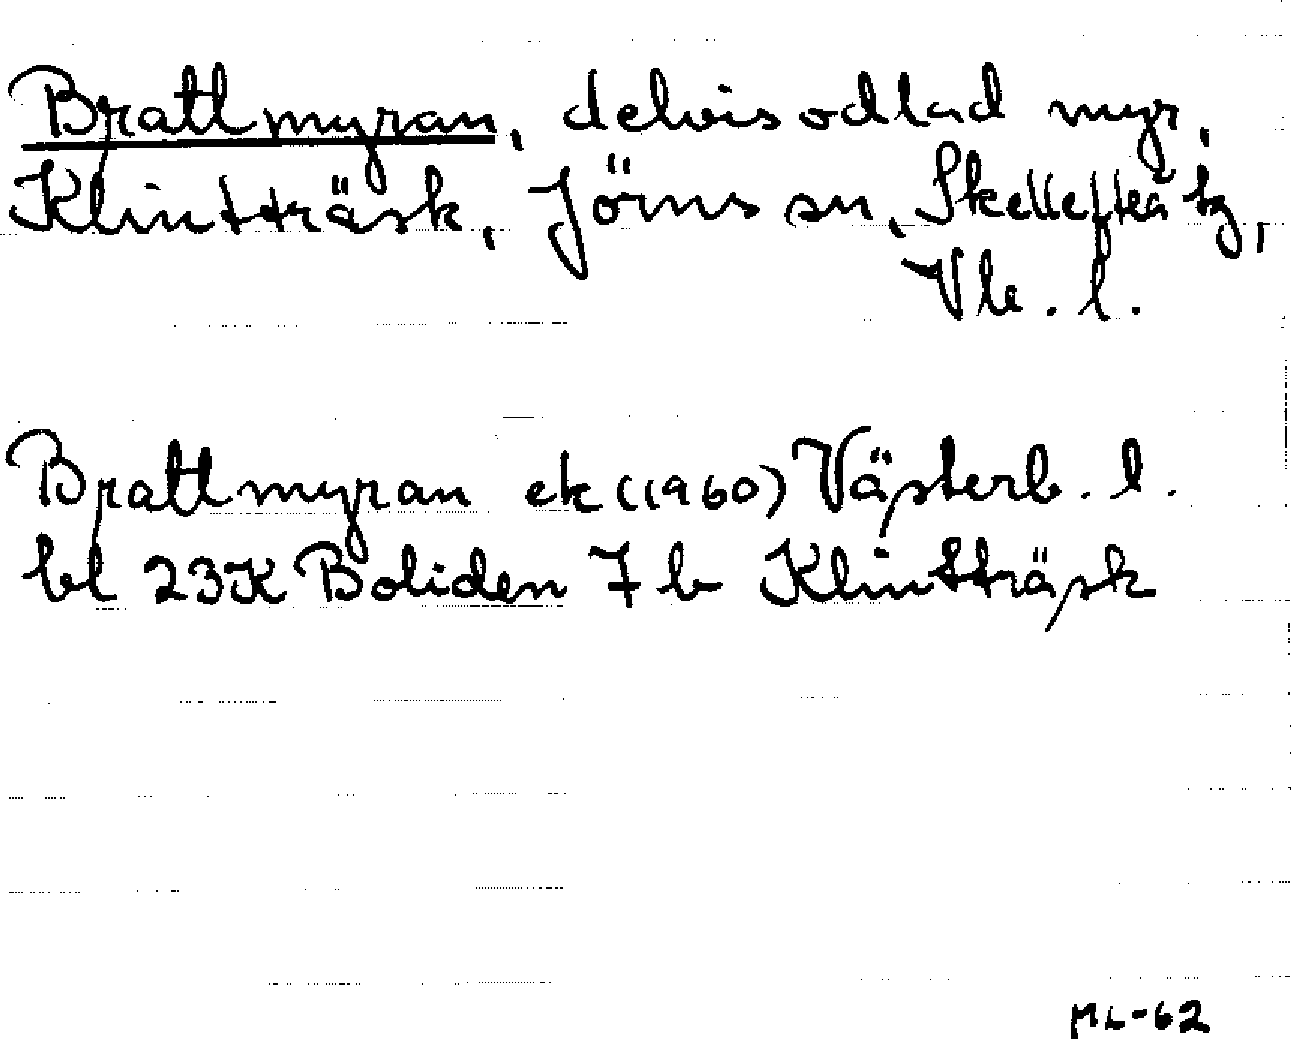 Brattmyran, delvis odlad myr,
Klintträsk, Jörns sn, Skellefteå tg,
Vb. l.
Brattmyran ek (1960) Västerb. l.
bl 23K Boliden 7 b Klintträsk
ML-62